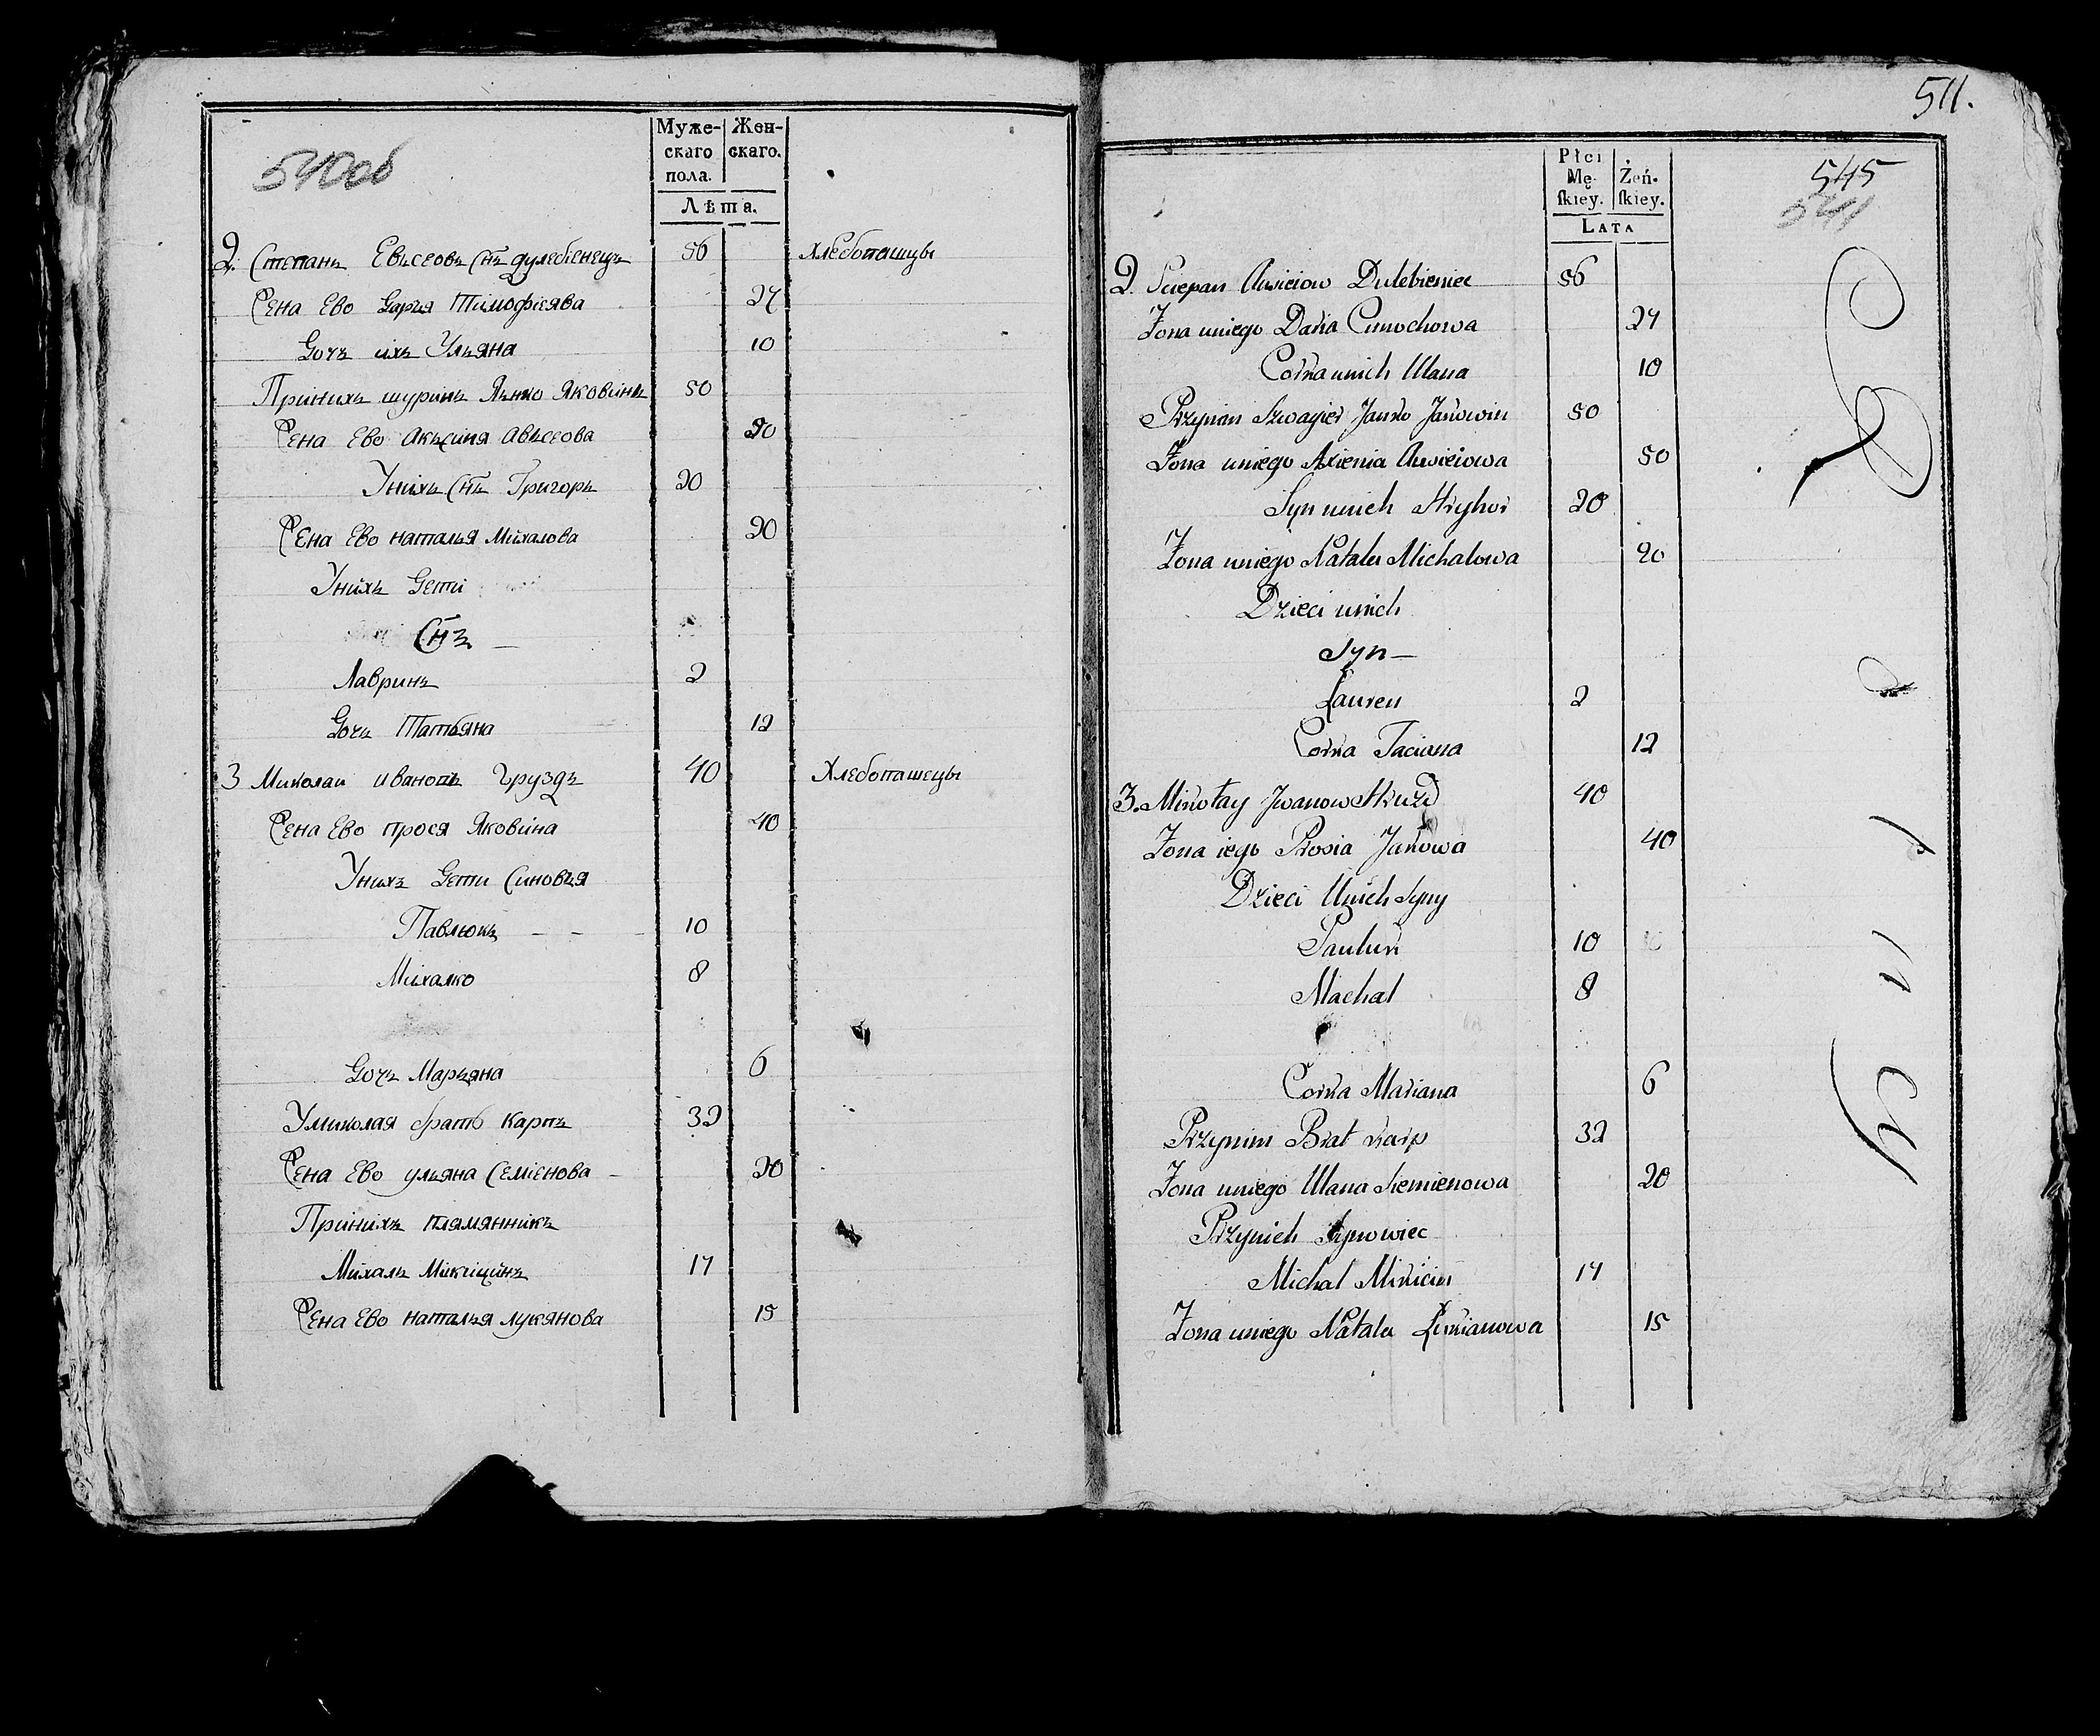 540об
Муже-
скаго
пола.
Жен-
скаго.
Лѣта.
2. Степанъ Евсеовъ Снъ дулебенецъ 56 Хлебопашцы
Жена Ево Дарья Тимофіява 27
Дочъ ихъ Ульяна 10
Прінихъ шуринъ Янко Яковинъ 50
Жена Ево Аксіння Авсеова 50
Унихъ Снъ Григоръ 20
Жена Ево наталья Михалова 20
Унихъ Дети
Снъ
Лавринъ 2
Дочъ Татьяна 12
3 Миколаи ивановъ Груздъ 40 Хлебопашецы
Жена Ево прося Яковина 40
Унихъ Дети Синовья
Павлюкъ 10
Михалко 8
Дочъ Марьяна 6
Умиколая братъ Карпъ 32
Жена Ево ульяна Семіенова 20
Прінихъ плямянникъ
Михалъ Микицинъ 17
Жена Ево наталья лукянова 15
511.
Płci
Mę-
ſkiey.
Żeń-
ſkiey.
Lata
545
541
2. Sciepan Awsieiow Dulebieniec 56
Żona uniego Daria Cimochowa 27
Corka unich Ulana 10
Przynim Szwagier Janko Jakowin 50
Żona uniego Axienia Awsieiowa 50
Syn unich Hryhor 20
Żona uniego Natala Michalowa 20
Dzieci unich
Syn —
Lauren 2
Corka Taciana 12
3. Mikołay Jwanow Hruzd 40
Żona iego Prosia Jakowa 40
Dzieci Unich Syny
Pauluk 10
Machal 8
Corka Mariana 6
Przynim Brat Karp 32
Żona uniego Ulana Siemienowa 20
Przynich Synowiec
Michal Mikicin 17
Żona uniego Natala Lukianowa 15